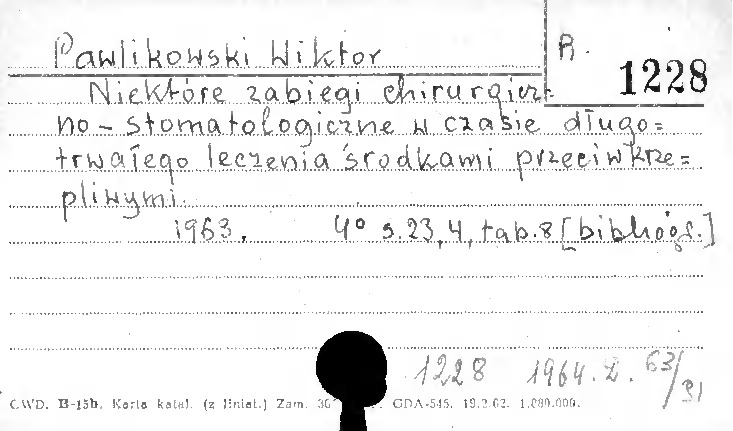 Pawlikowski Wiktor
R.
1228
Niektóre zabiegi chirurgicz=
no-stomatologiczne w czasie długo=
trwałego leczenia środkami przeciwkrze=
pliwymi.
1963. 4° s.23,4, tab.8 [bibliogr.]
1228 1964.D. 63/31
CWD. B-15b. Karta katal. (z liniat.) Zam. GDA-545. 19.2.62. 1.000.000.